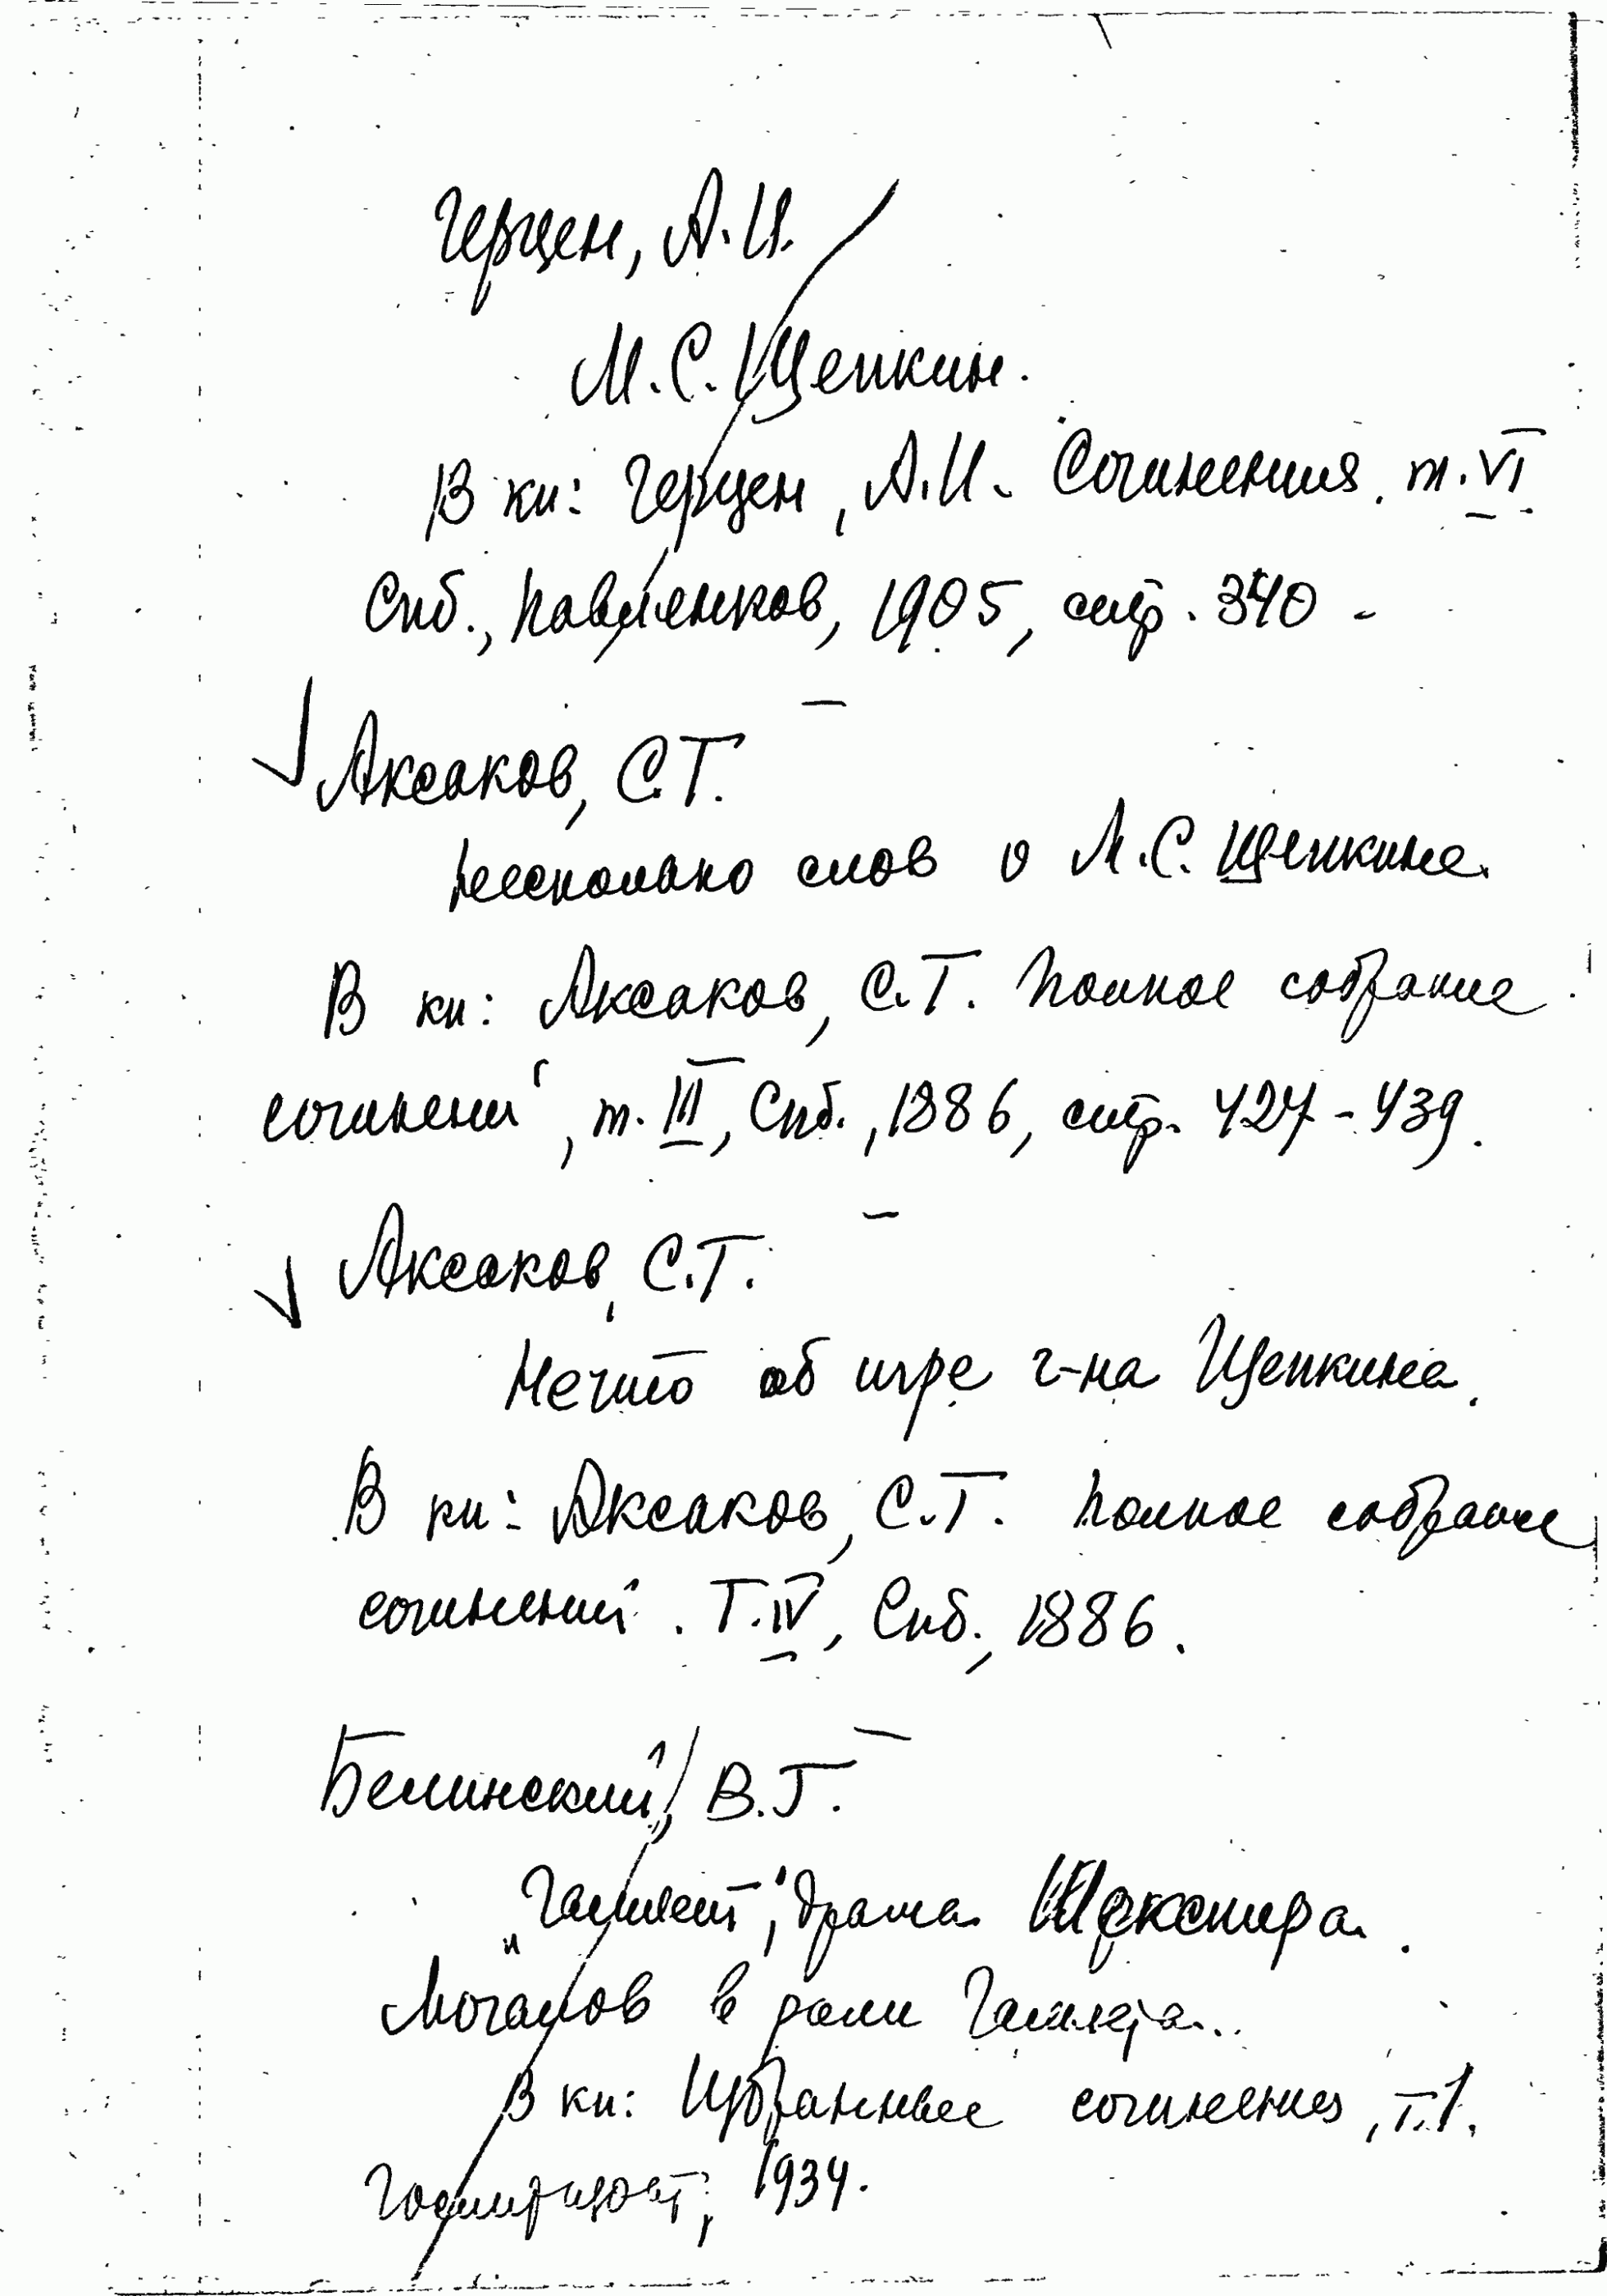 Герцен, А.И.
М.С. Щепкин.
В кн: Герцен, А.И. Сочинения. т. VI.
Спб., Павленков, 1905, стр. 340 -
Аксаков, С.Т.
Несколько слов о М.С. Щепкине.
В кн: Аксаков, С.Т. Полное собрание
сочинений, т. III, Спб., 1886, стр. 427-439.
Аксаков, С.Т.
Нечто об игре г-на Щепкина.
В кн: Аксаков, С.Т. Полное собрание
сочинений. Т. IV, Спб., 1886.
Белинский, В.Г.
„Гамлет", драма Шекспира.
Мочалов в роли Гамлета..
В кн: Избранные сочинения, т.1.
Гослитиздат, 1934.